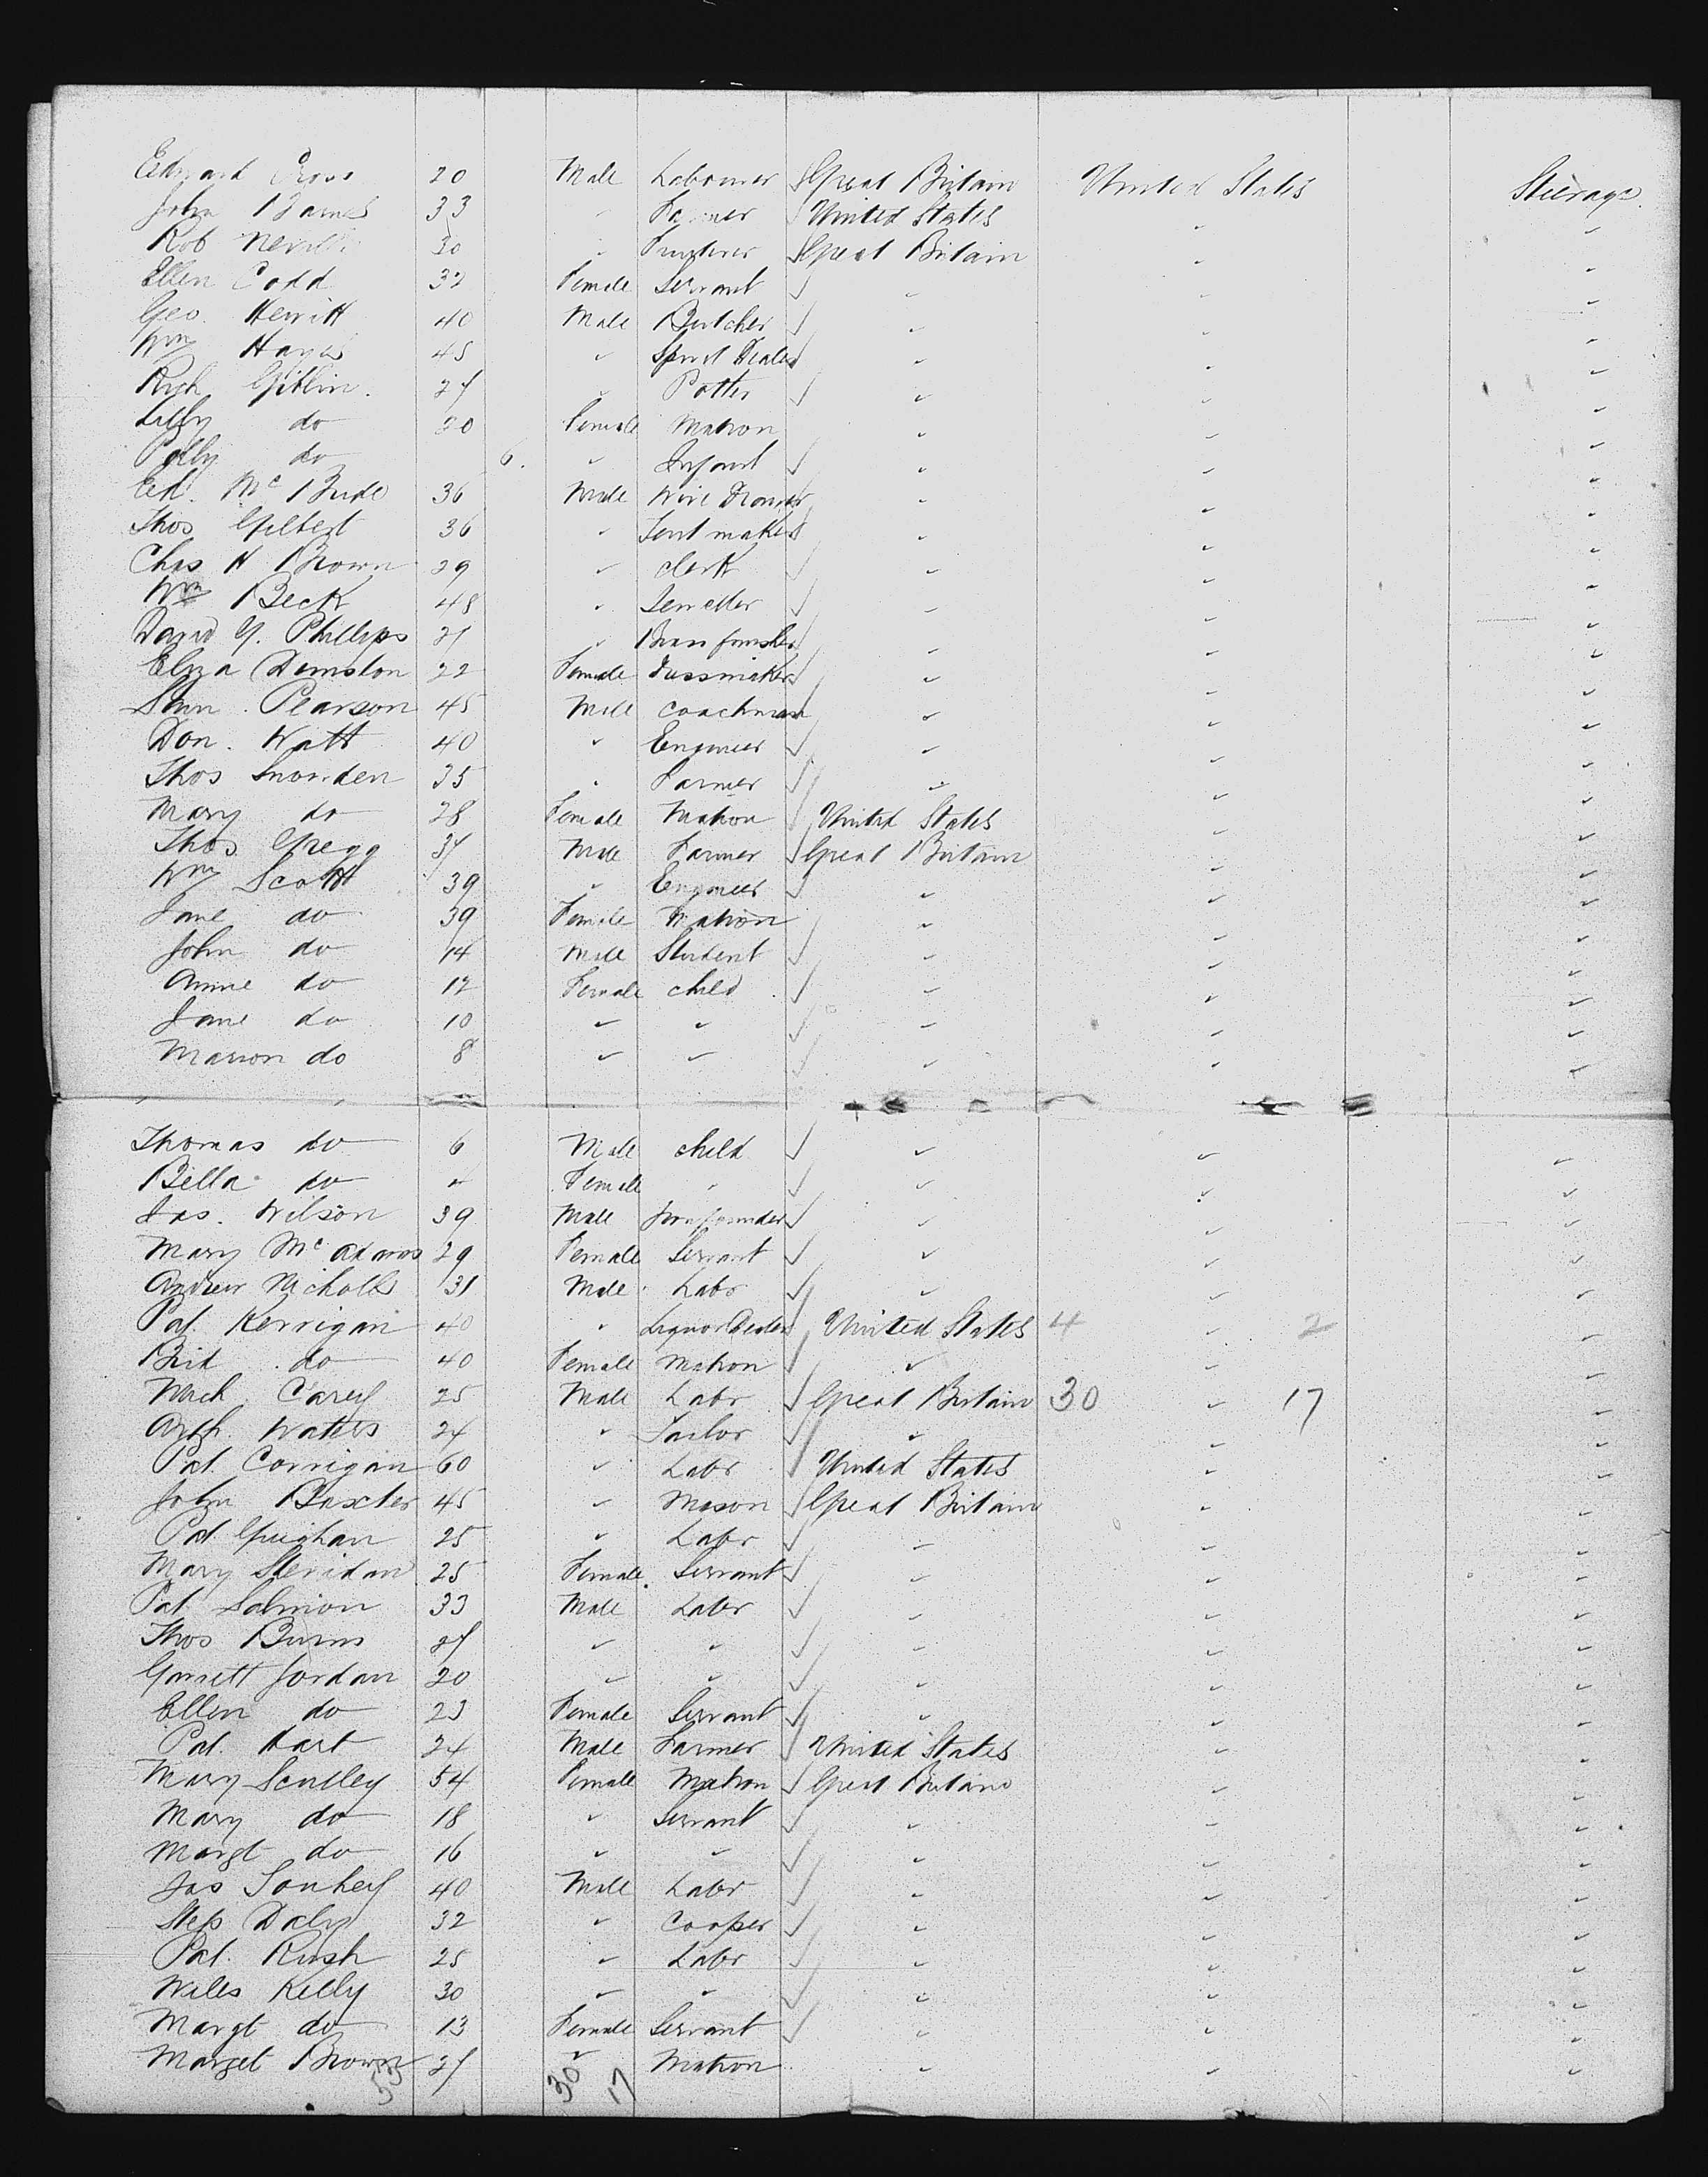 Edward Cross 20 Male Labourer Great Britain United States Steerage
John Barnes 33 " Farmer United States " "
Rob Nevill 30 " Great Britain " "
Ellen Codd 32 Female Servant " " "
Geo. Hewitt 40 Male Butcher " " "
Wm Hayes 45 " Spirit Dealer " " "
Rich Giblin 27 " Potter " " "
Lizzy do 30 Female Matron " " "
Polly do 6. " Infant " " "
Ed. Mc Bride 36 Male Wire Drawer " " "
Thos Gilbert 36 " Tent maker " " "
Chas H Brown 29 " Clerk " " "
Wm Beck 48 " Jeweller " " "
David G. Phillips 21 " Brass finisher " " "
Eliza Dumston 22 Female Dressmaker " " "
Pearson 45 Male Coachman " " "
Don. Watt 40 " Engineer " " "
Thos Snowden 35 " Farmer " " "
Mary do 28 Female Matron United States " "
Thos Gregg 37 Male Farmer Great Britain " "
Wm Scott 39 " Engineer " " "
Jane do 39 Female Matron " " "
John do 14 Male Student " " "
Annie do 12 Female child " " "
Jane do 10 " " " " "
Marion do 8 " " " " "
Thomas do 6 Male child " " "
Bella do Female " " " "
Jas. Wilson 39 Male Iron founder " " "
Mary Mc Adams 29 Female Servant " " "
Andrew Nicholls 31 Male Labr " " "
Pat Kerrigan 40 " Liquor Dealer United States 4 " 2 "
Brid do 40 Female Matron " " "
Mich Carey 25 Male Labr Great Britain 30 " 17 "
Arth. Waters 24 " Tailor " " "
Pat. Corrigan 60 " Labr United States " "
John Baxter 45 " Mason Great Britain " "
Pat. Gueghan 25 " Labr " " "
Mary Sheridan 25 Female Servant " " "
Pat Salmon 33 Male Labr " " "
Thos Burns 27 " " " " "
Garrett Jordan 20 " " " " "
Ellen do 23 Female Servant " " "
Pat. Hart 24 Male Farmer United States " "
Mary Scully 54 Female Matron Great Britain " "
Mary do 18 " Servant " " "
Margt do 16 " " " " "
Jas 40 Male Labr " " "
Step Daly 32 " Cooper " " "
Pat. Rush 25 " Labr " " "
Kelly 30 " " " " "
Margt do 13 Female Servant " " "
Marget Brown 27 " Matron " " "
53 30 17